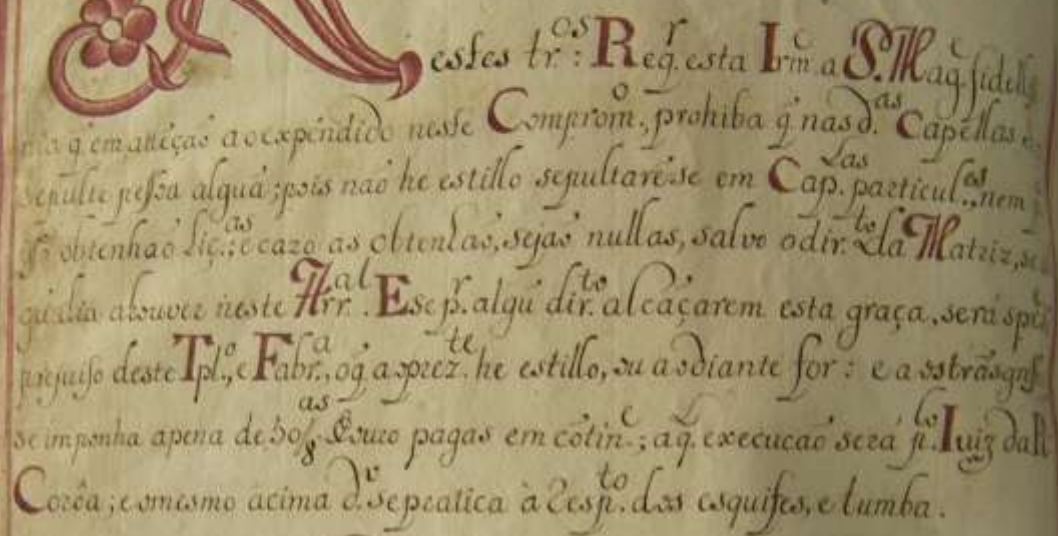 estes tr.os: Req.r esta Irm.e a S. Mag.e fidelis
q̃ em attẽçaõ ao expendido neste Comprom.o, prohiba q̃ nas d.as Capellas
sepulte pessoa algũa; pois naõ he estillo sepultarẽse em Cap.las particul.es, nem
obtenhaõ Liç.as; e cazo as obtenhaõ, sejaõ nullas, salvo o dir.to da Matriz,
aLouver neste Arr.al. E se p.r algũ dir.to alcãçarem esta graça, será
prejuiso deste Tpl.o, e Fabr.a, o q̃ a prez.te he estillo, ou ao diante for: e aos
se imponha a pena de 50/8.as de ouro pagas em cõtin.e; a q̃. execucaõ será p.lo Luiz da R
Corôa; e o mesmo acima d.o se pratica à Resp.to dos esquifes, e tumba.